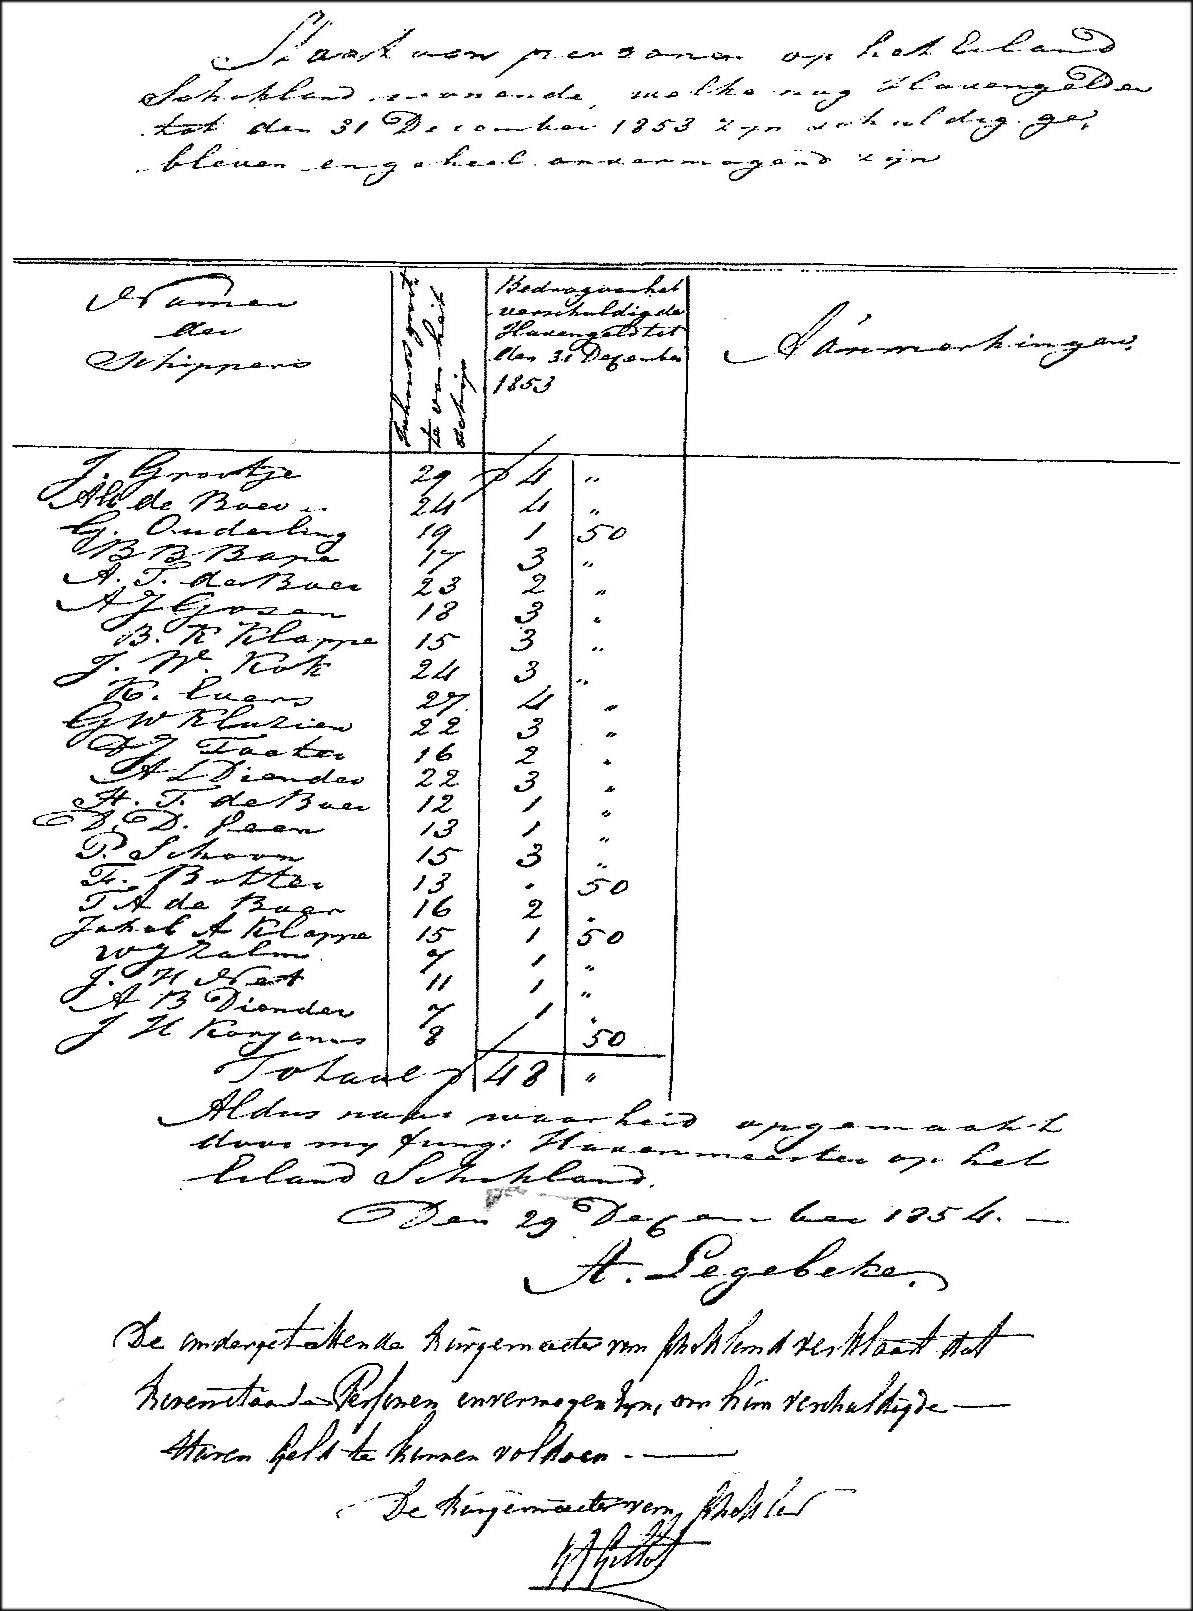 Staat van personen op het Eiland
Schokland wonende, welke nog Havengelden
tot den 31 December 1853 zijn schuldig ge-
bleven en geheel onvermogend zijn
Namen
der
Schippers
Inhouds groot-
te van het
schip
Bedrag van het
verschuldigde
Havengeld tot
den 31 December
1853
Aanmerkingen
J. Grootje 29 f 4 "
Alb de Boer 24 4 "
G. Ouderling 19 1 50
B B Bape 17 3 "
A. T. de Boer 23 2 "
A J Gosen 18 3 "
B. K Klappe 15 3 "
J. W. Kok 24 3 "
K. Evers 27 4 "
G W Kluzien 22 3 "
D J Toeter 16 2 "
A L Diender 22 3 "
H. T. de Boer 12 1 "
D. D. Peen 13 1 "
P. Schoon 15 3 "
F. Botter 13 " 50
T A de Boer 16 2 "
Jakob A Klappe 15 1 50
W J Zalm 7 1 "
J. H Neet 11 1 "
A B Diender 7 1 "
J H Korjanus 8 / 50
Totaal f 48 "
Aldus naar waarheid opgemaakt
door my fung: Havenmeester op het
Eiland Schokland.
Den 29 December 1854.
A. Legebeke.
De ondergetekende Burgemeester van Schokland verklaart dat
bovenstaande Personen onvermogen zyn, om hun verschuldigde
Haven Geld te kunnen voldoen
De Burgemeester van Schokland
G J Gillot